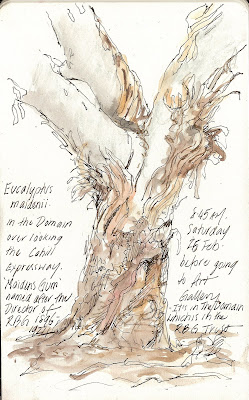 Eucalyptis
maidenii
in the Domain
over looking
the Cahill
Expressway.
Maidens Gum
named after the
Director of
RBG 1896-
8.45 AM.
Saturday
Feb
before going
to Art
Gallery
- Its in the Domain
which is in the
RBG Trust